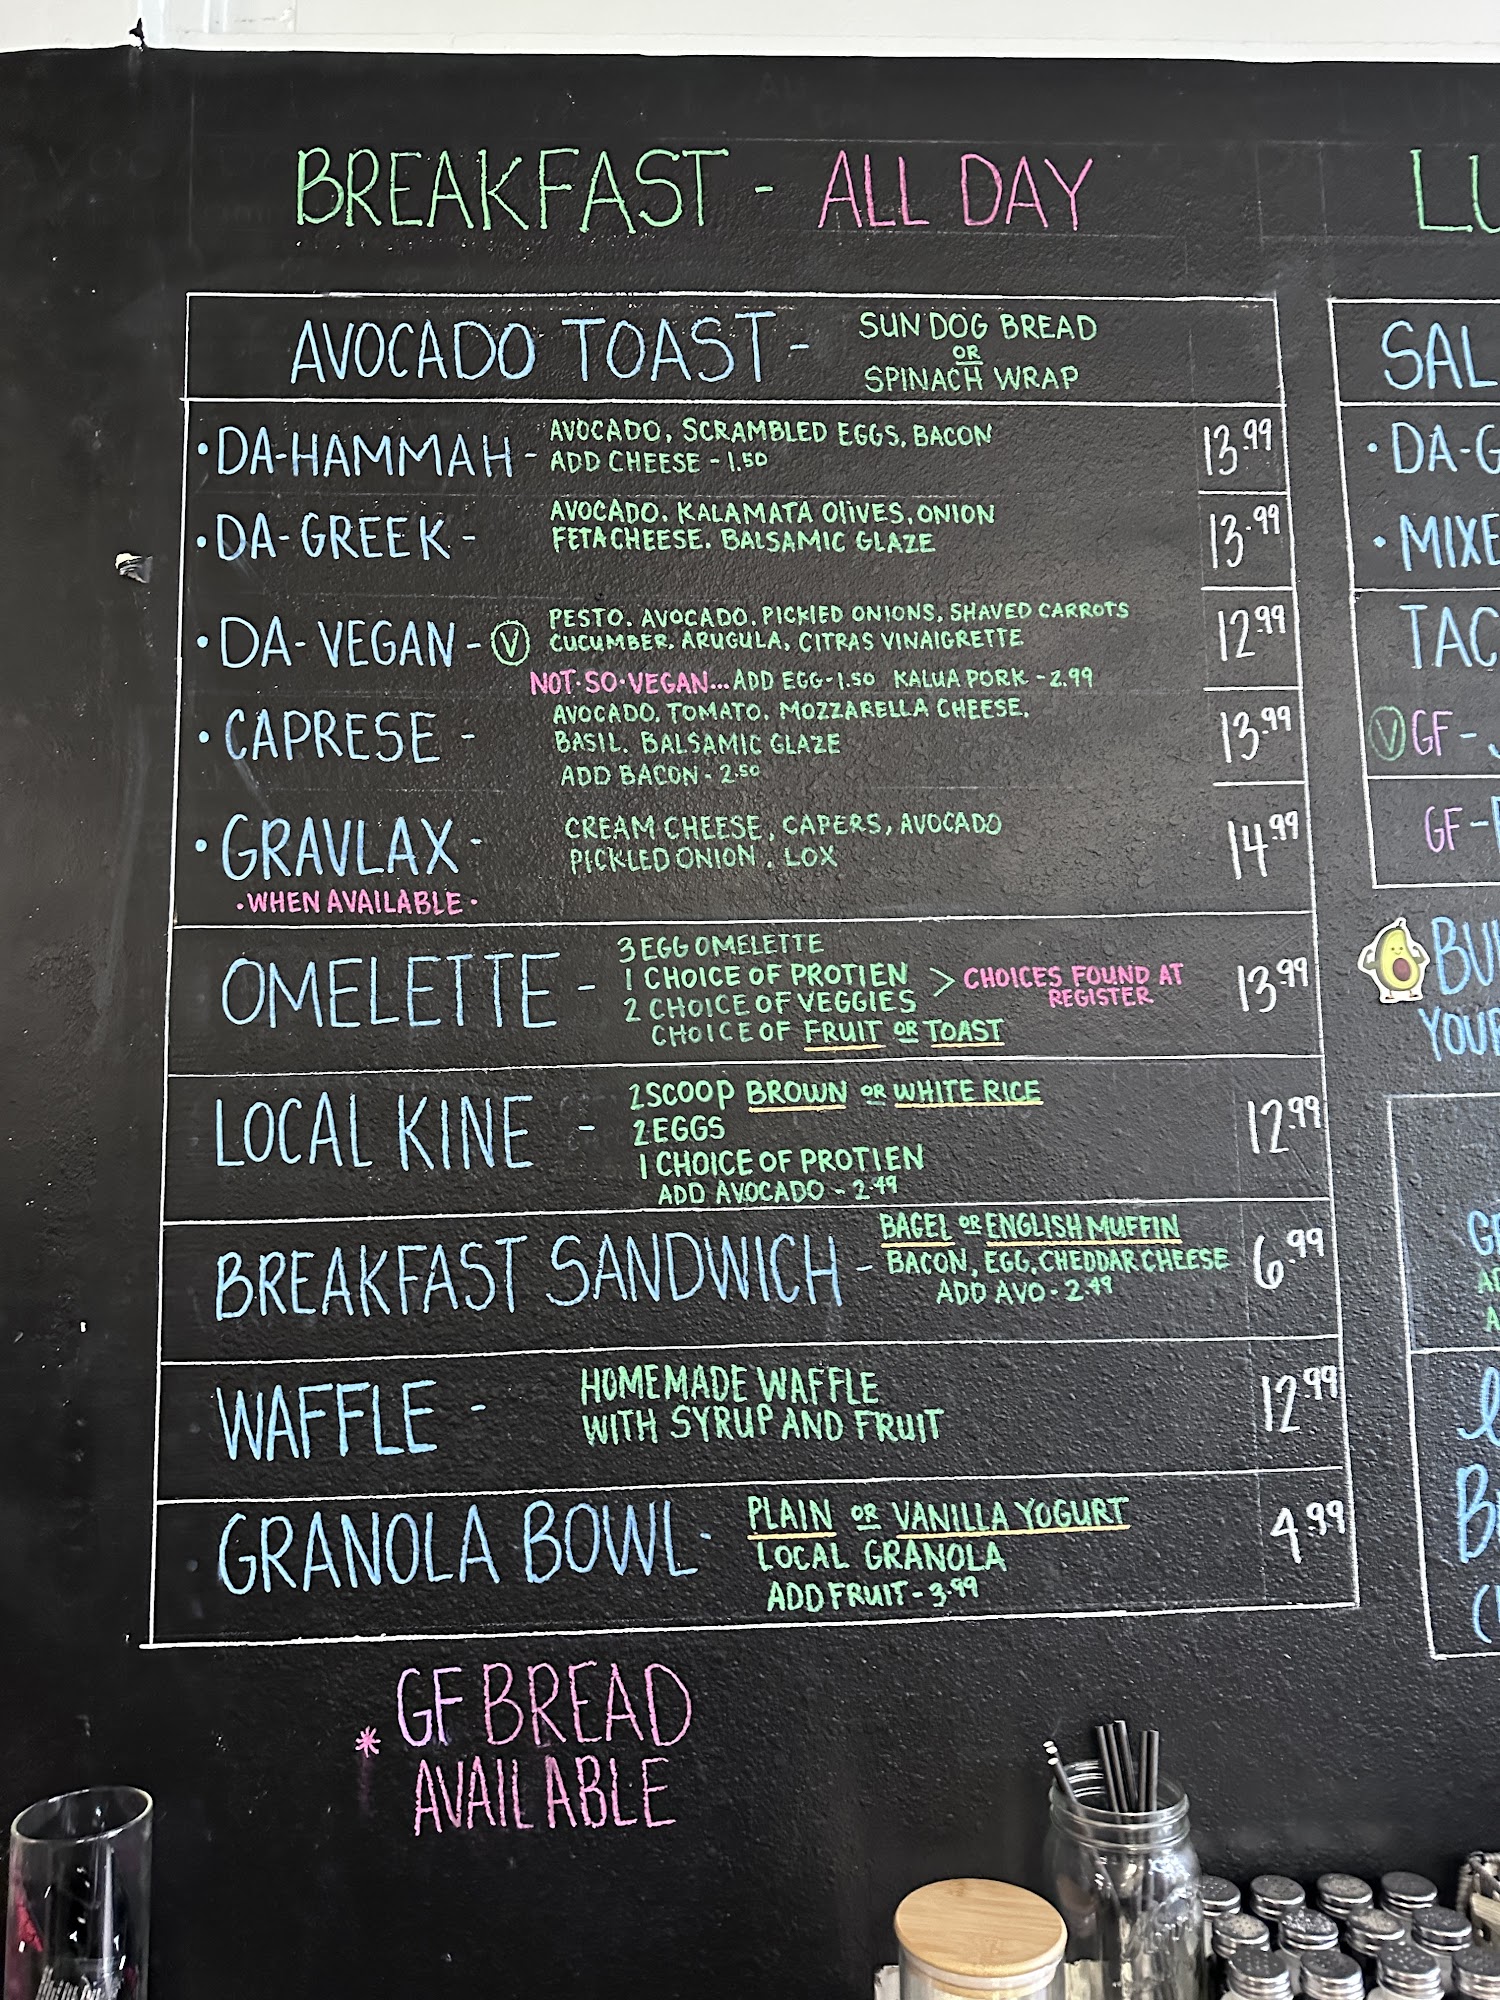 BREAKFAST - ALL DAY
AVOCADO TOAST - SUN DOG BREAD
OR
SPINACH WRAP
• DA-HAMMAH - AVOCADO, SCRAMBLED EGGS, BACON 13.99
ADD CHEESE - 1.50
• DA-GREEK - AVOCADO. KALAMATA OLIVES, ONION 13.99
FETA CHEESE. BALSAMIC GLAZE
• DA-VEGAN - V PESTO. AVOCADO. PICKLED ONIONS, SHAVED CARROTS 12.99
CUCUMBER, ARUGULA, CITRAS VINAIGRETTE
NOT·SO·VEGAN... ADD EGG-1.50 KALUA PORK - 2.99
• CAPRESE - AVOCADO. TOMATO. MOZZARELLA CHEESE. 13.99
BASIL. BALSAMIC GLAZE
ADD BACON - 2.50
• GRAVLAX - CREAM CHEESE, CAPERS, AVOCADO 14.99
PICKLED ONION. LOX
• WHEN AVAILABLE •
OMELETTE - 3 EGG OMELETTE 13.99
1 CHOICE OF PROTIEN > CHOICES FOUND AT
2 CHOICE OF VEGGIES REGISTER
CHOICE OF FRUIT OR TOAST
LOCAL KINE - 2 SCOOP BROWN OR WHITE RICE 12.99
2 EGGS
1 CHOICE OF PROTIEN
ADD AVOCADO - 2.49
BREAKFAST SANDWICH - BAGEL OR ENGLISH MUFFIN 6.99
BACON, EGG, CHEDDAR CHEESE
ADD AVO - 2.49
WAFFLE - HOMEMADE WAFFLE 12.99
WITH SYRUP AND FRUIT
GRANOLA BOWL - PLAIN OR VANILLA YOGURT 4.99
LOCAL GRANOLA
ADD FRUIT - 3.99
* GF BREAD
AVAILABLE
LU
SAL
• DA-G
• MIXE
TAC
V GF -
GF -
BU
YOUR